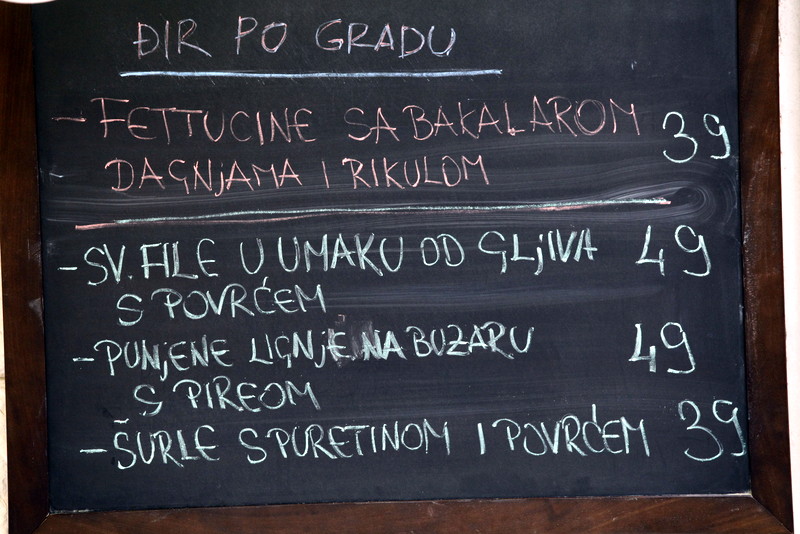 ĐIR PO GRADU
- FETTUCINE SA BAKALAROM 39
DAGNjAMA I RIKULOM
- SV. FILE U UMAKU OD GLjIVA 49
S POVRĆEM
- PUNjENE LIGNjE NA BUZARU 49
S PIREOM
- ŠURLE S PURETINOM I POVRĆEM 39